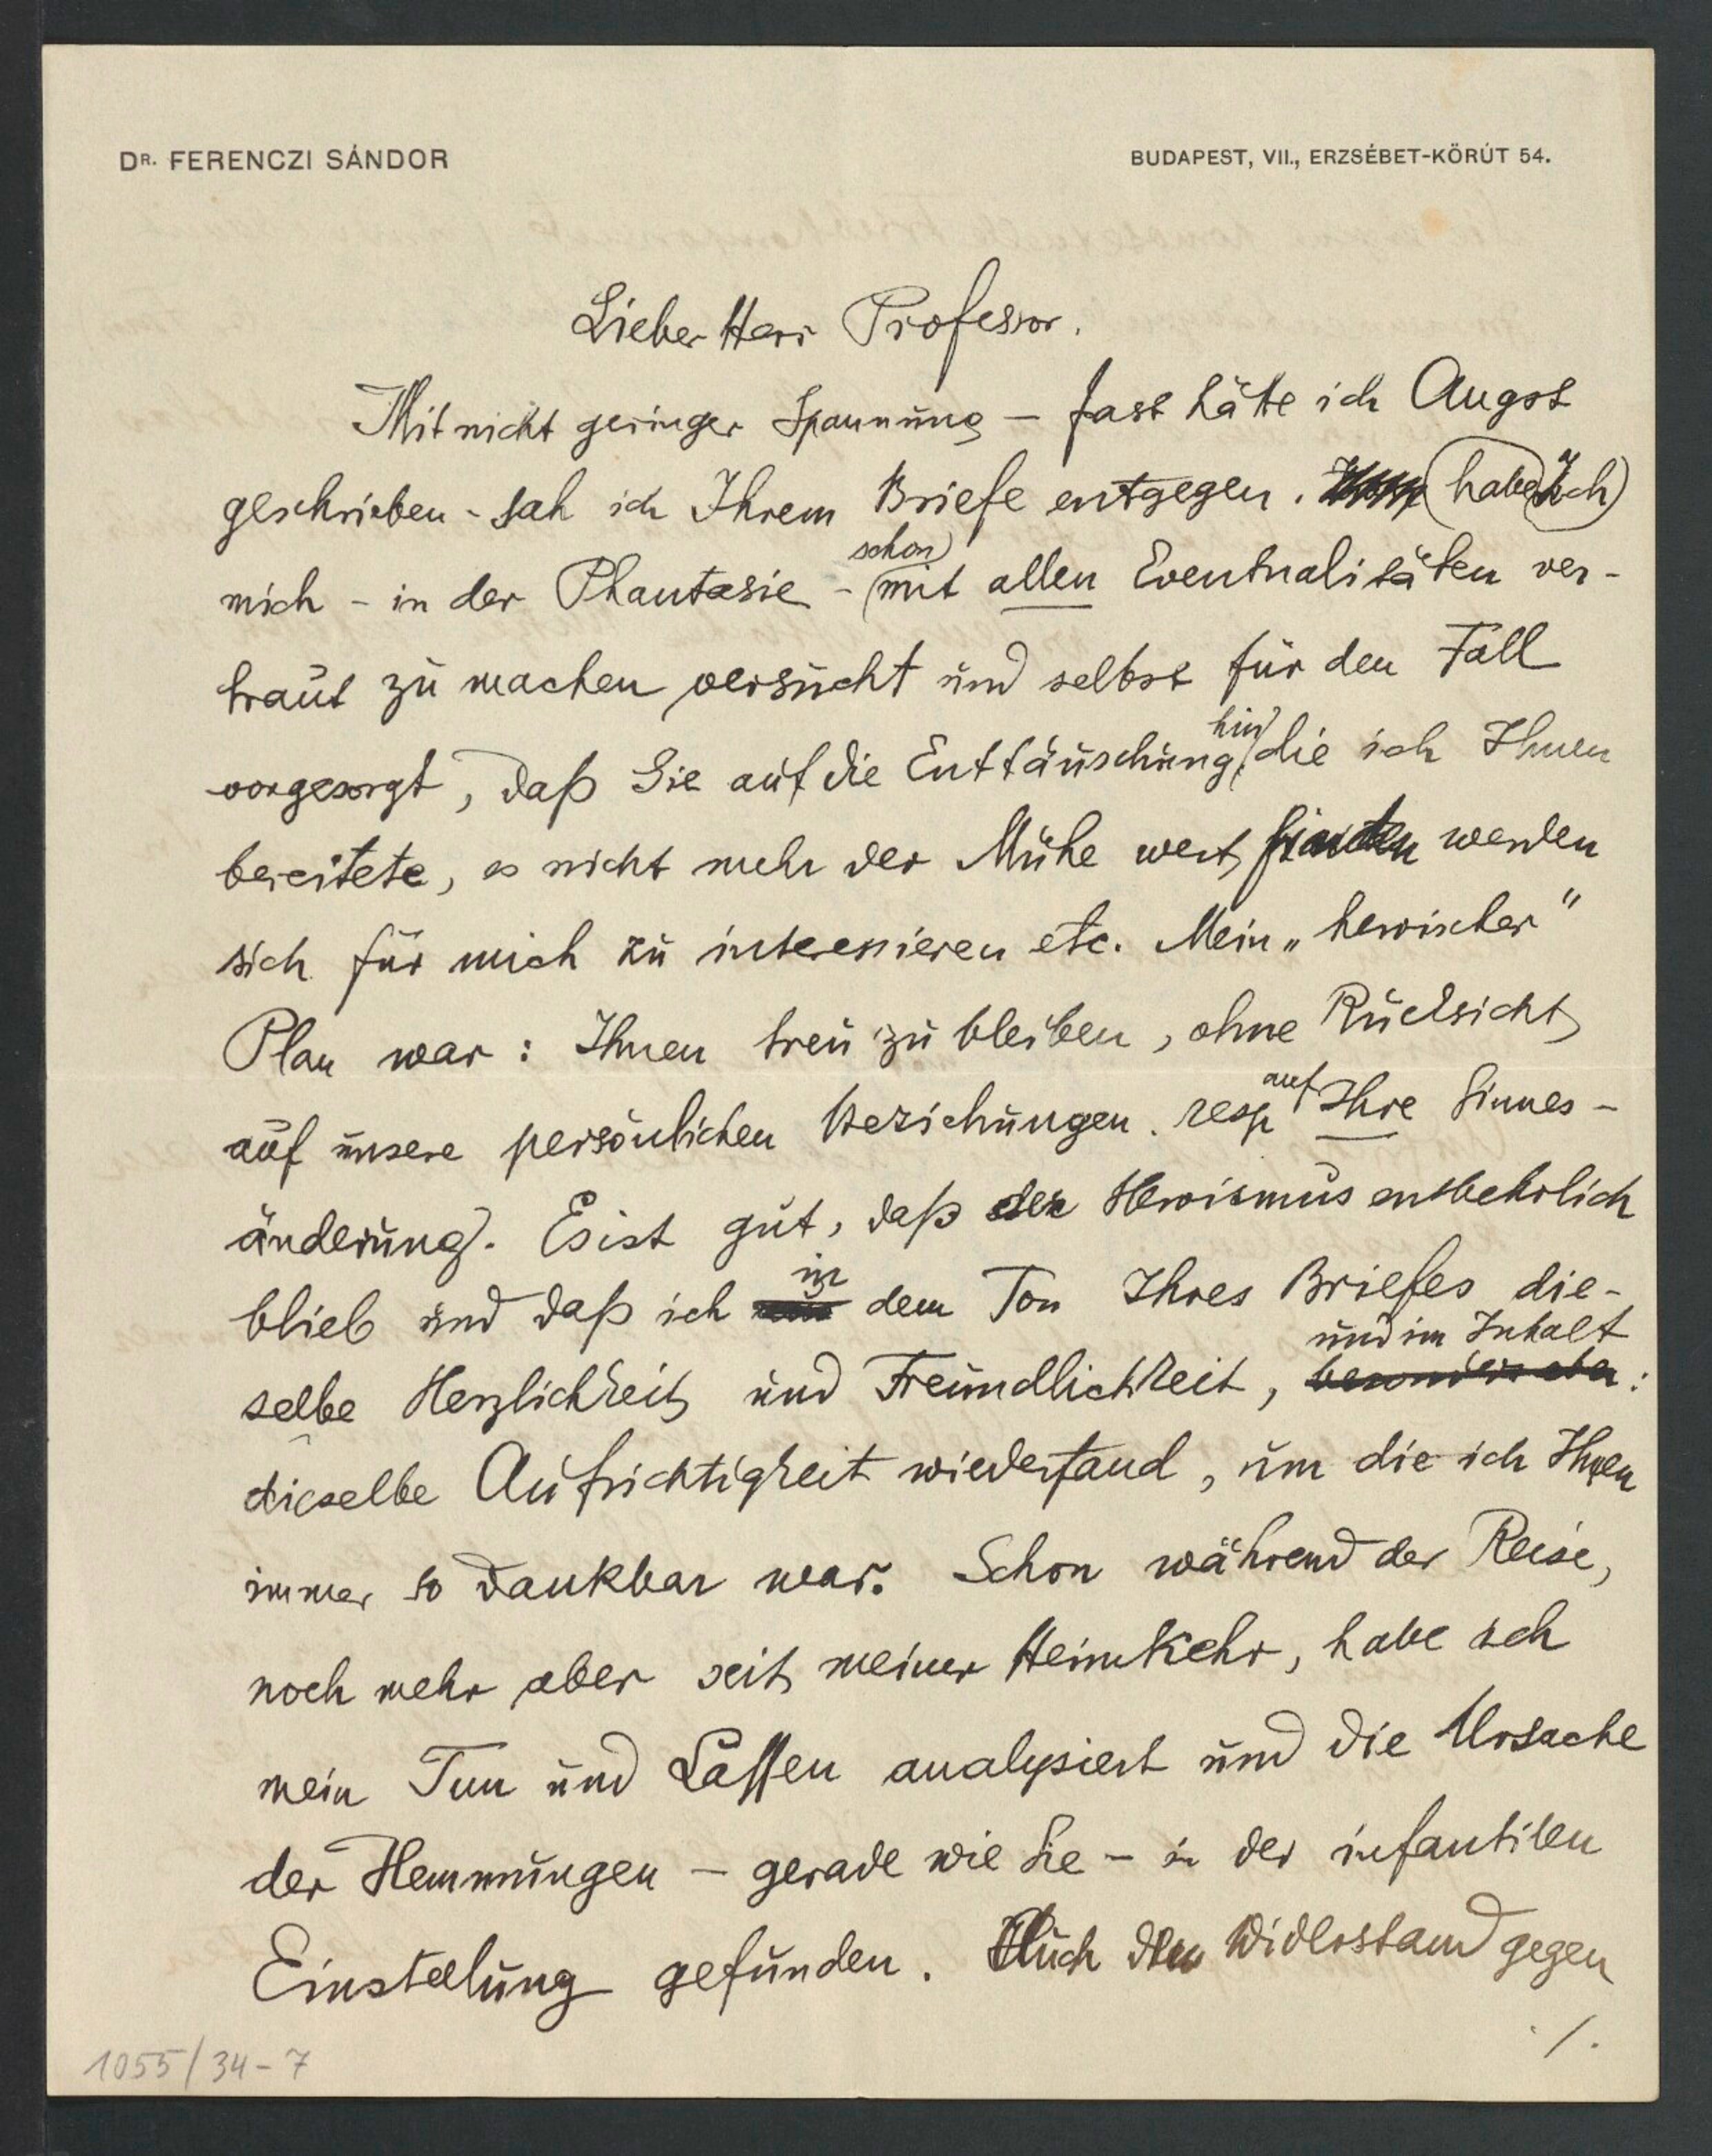 DR. FERENCZI SÁNDOR
BUDAPEST, VII., ERZSÉBET-KÖRÚT 54.
Lieber Herr Professor.
Mit nicht geringer Spannung – fast hätte ich Angst
geschrieben – sah ich Ihrem Briefe entgegen. habe Ich
schon
mich – in der Phantasie – mit allen Eventualitäten ver-
traut zu machen versucht und selbst für den Fall
hin
vorgesorgt, daß Sie auf die Enttäuschung, die ich Ihnen
bereitete, es nicht mehr der Mühe wert finden werden
sich für mich zu interessieren etc. Mein „heroischer"
Plan war: Ihnen treu zu bleiben, ohne Rücksicht
auf
auf unsere persönlichen Beziehungen. resp Ihre Sinnes-
änderung). Es ist gut, daß der Heroismus entbehrlich
in
blieb und daß ich dem Ton Ihres Briefes die-
und im Inhalt
selbe Herzlichkeit und Freundlichkeit, besonders aber:
dieselbe Aufrichtigkeit wiederfand, um die ich Ihnen
immer so dankbar war. Schon während der Reise,
noch mehr aber seit meiner Heimkehr, habe ich
mein Tun und Lassen analysiert und die Ursache
der Hemmungen – gerade wie Sie – in der infantilen
Einstellung gefunden. Auch den Widerstand gegen
./.
1055/34-7